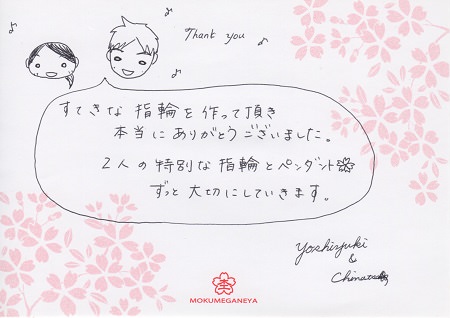 Thank you
すてきな指輪を作って頂き
本当にありがとうございました。
2人の特別な指輪とペンダント
ずっと大切にしていきます。
Yoshiyuki
&
MOKUMEGANEYA